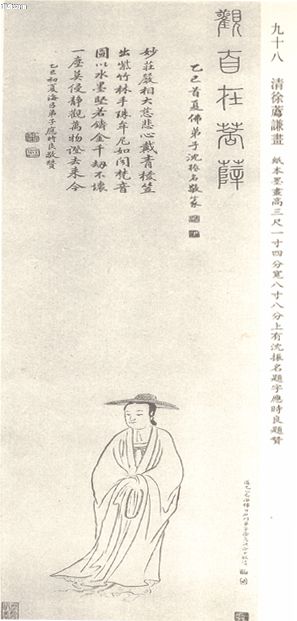 九十八 清徐謙畫
紙本墨畫高三尺一寸四分寬八寸八分上有沈振名題字應時良題贊
觀自在菩薩
乙巳首夏佛弟子沈振名敬篆
妙莊嚴相大慈悲心戴青棱笠
出紫竹林手珠牟尼如聞梵音
圖以水墨堅若鑄金千劫不壞
一塵莫侵靜觀萬物證去來今
乙巳初夏海昌弟子應時良敬贊